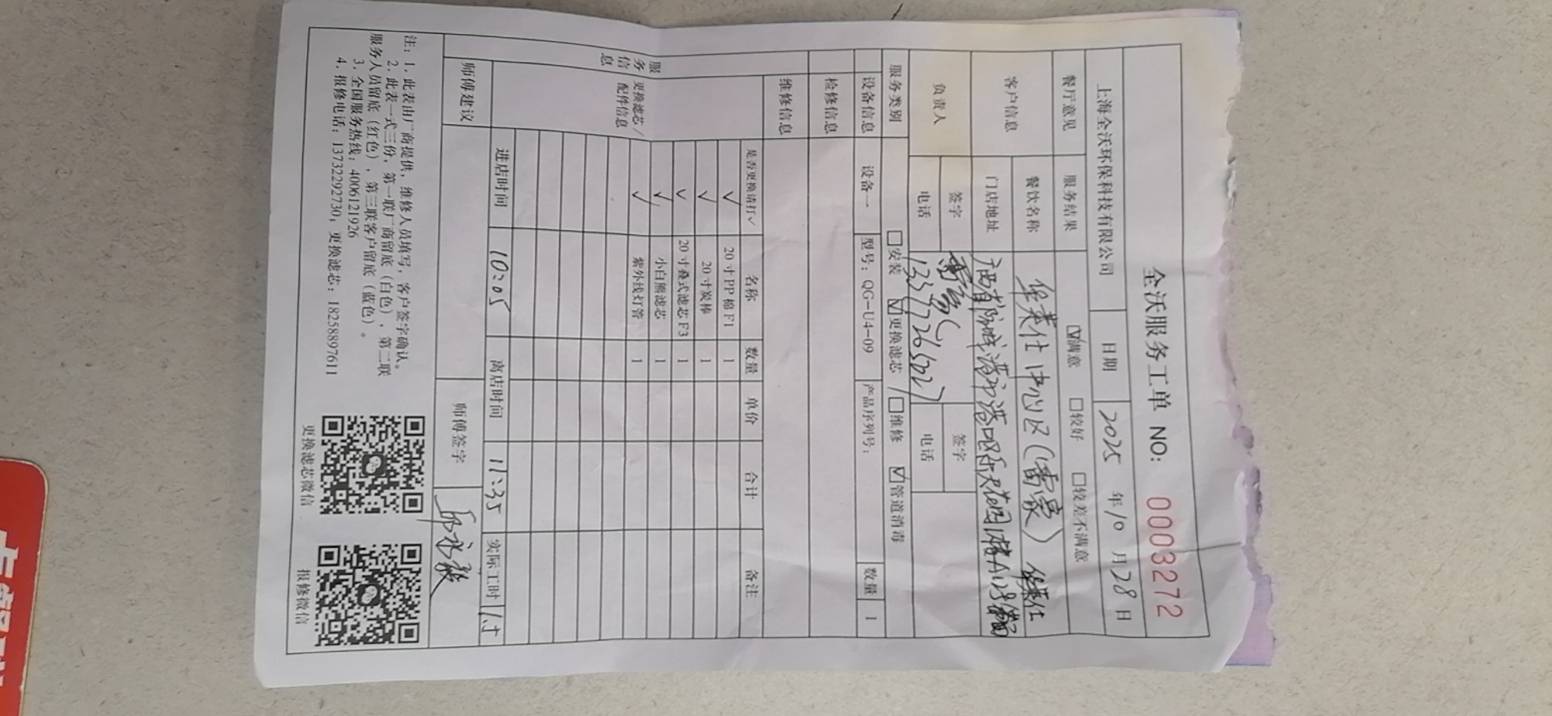 全沃服务工单 NO: 0003272
上海全沃环保科技有限公司 日期 2025 年 10 月 28 日
餐厅意见 服务结果 ☑满意 □较好 □较差不满意
客户信息 餐饮名称 华莱仕中心区(雷蒙) 华莱仕
门店地址
负责人 签字 签字
电话 13377265027 电话
服务类别 □安装 ☑更换滤芯 / □维修 ☑管道消毒
设备信息 设备一 型号: QG-U4-09 产品序列号: 数量 1
检修信息
维修信息
服务信息 更换滤芯/配件信息
是否更换请打✓ 名称 数量 单价 合计 备注
✓ 20寸PP棉F1 1
✓ 20寸炭棒 1
✓ 20寸叠式滤芯F3 1
✓ 小白熊滤芯 1
✓ 紫外线灯管 1
进店时间 10:05 离店时间 11:35 实际工时 1.5
师傅建议 师傅签字
注: 1. 此表由厂商提供, 维修人员填写, 客户签字确认。
2. 此表一式三份, 第一联厂商留底 (白色), 第二联
服务人员留底 (红色), 第三联客户留底 (蓝色)。
3. 全国服务热线: 4006121926
4. 报修电话: 13732292730; 更换滤芯: 18258897611
更换滤芯微信 报修微信